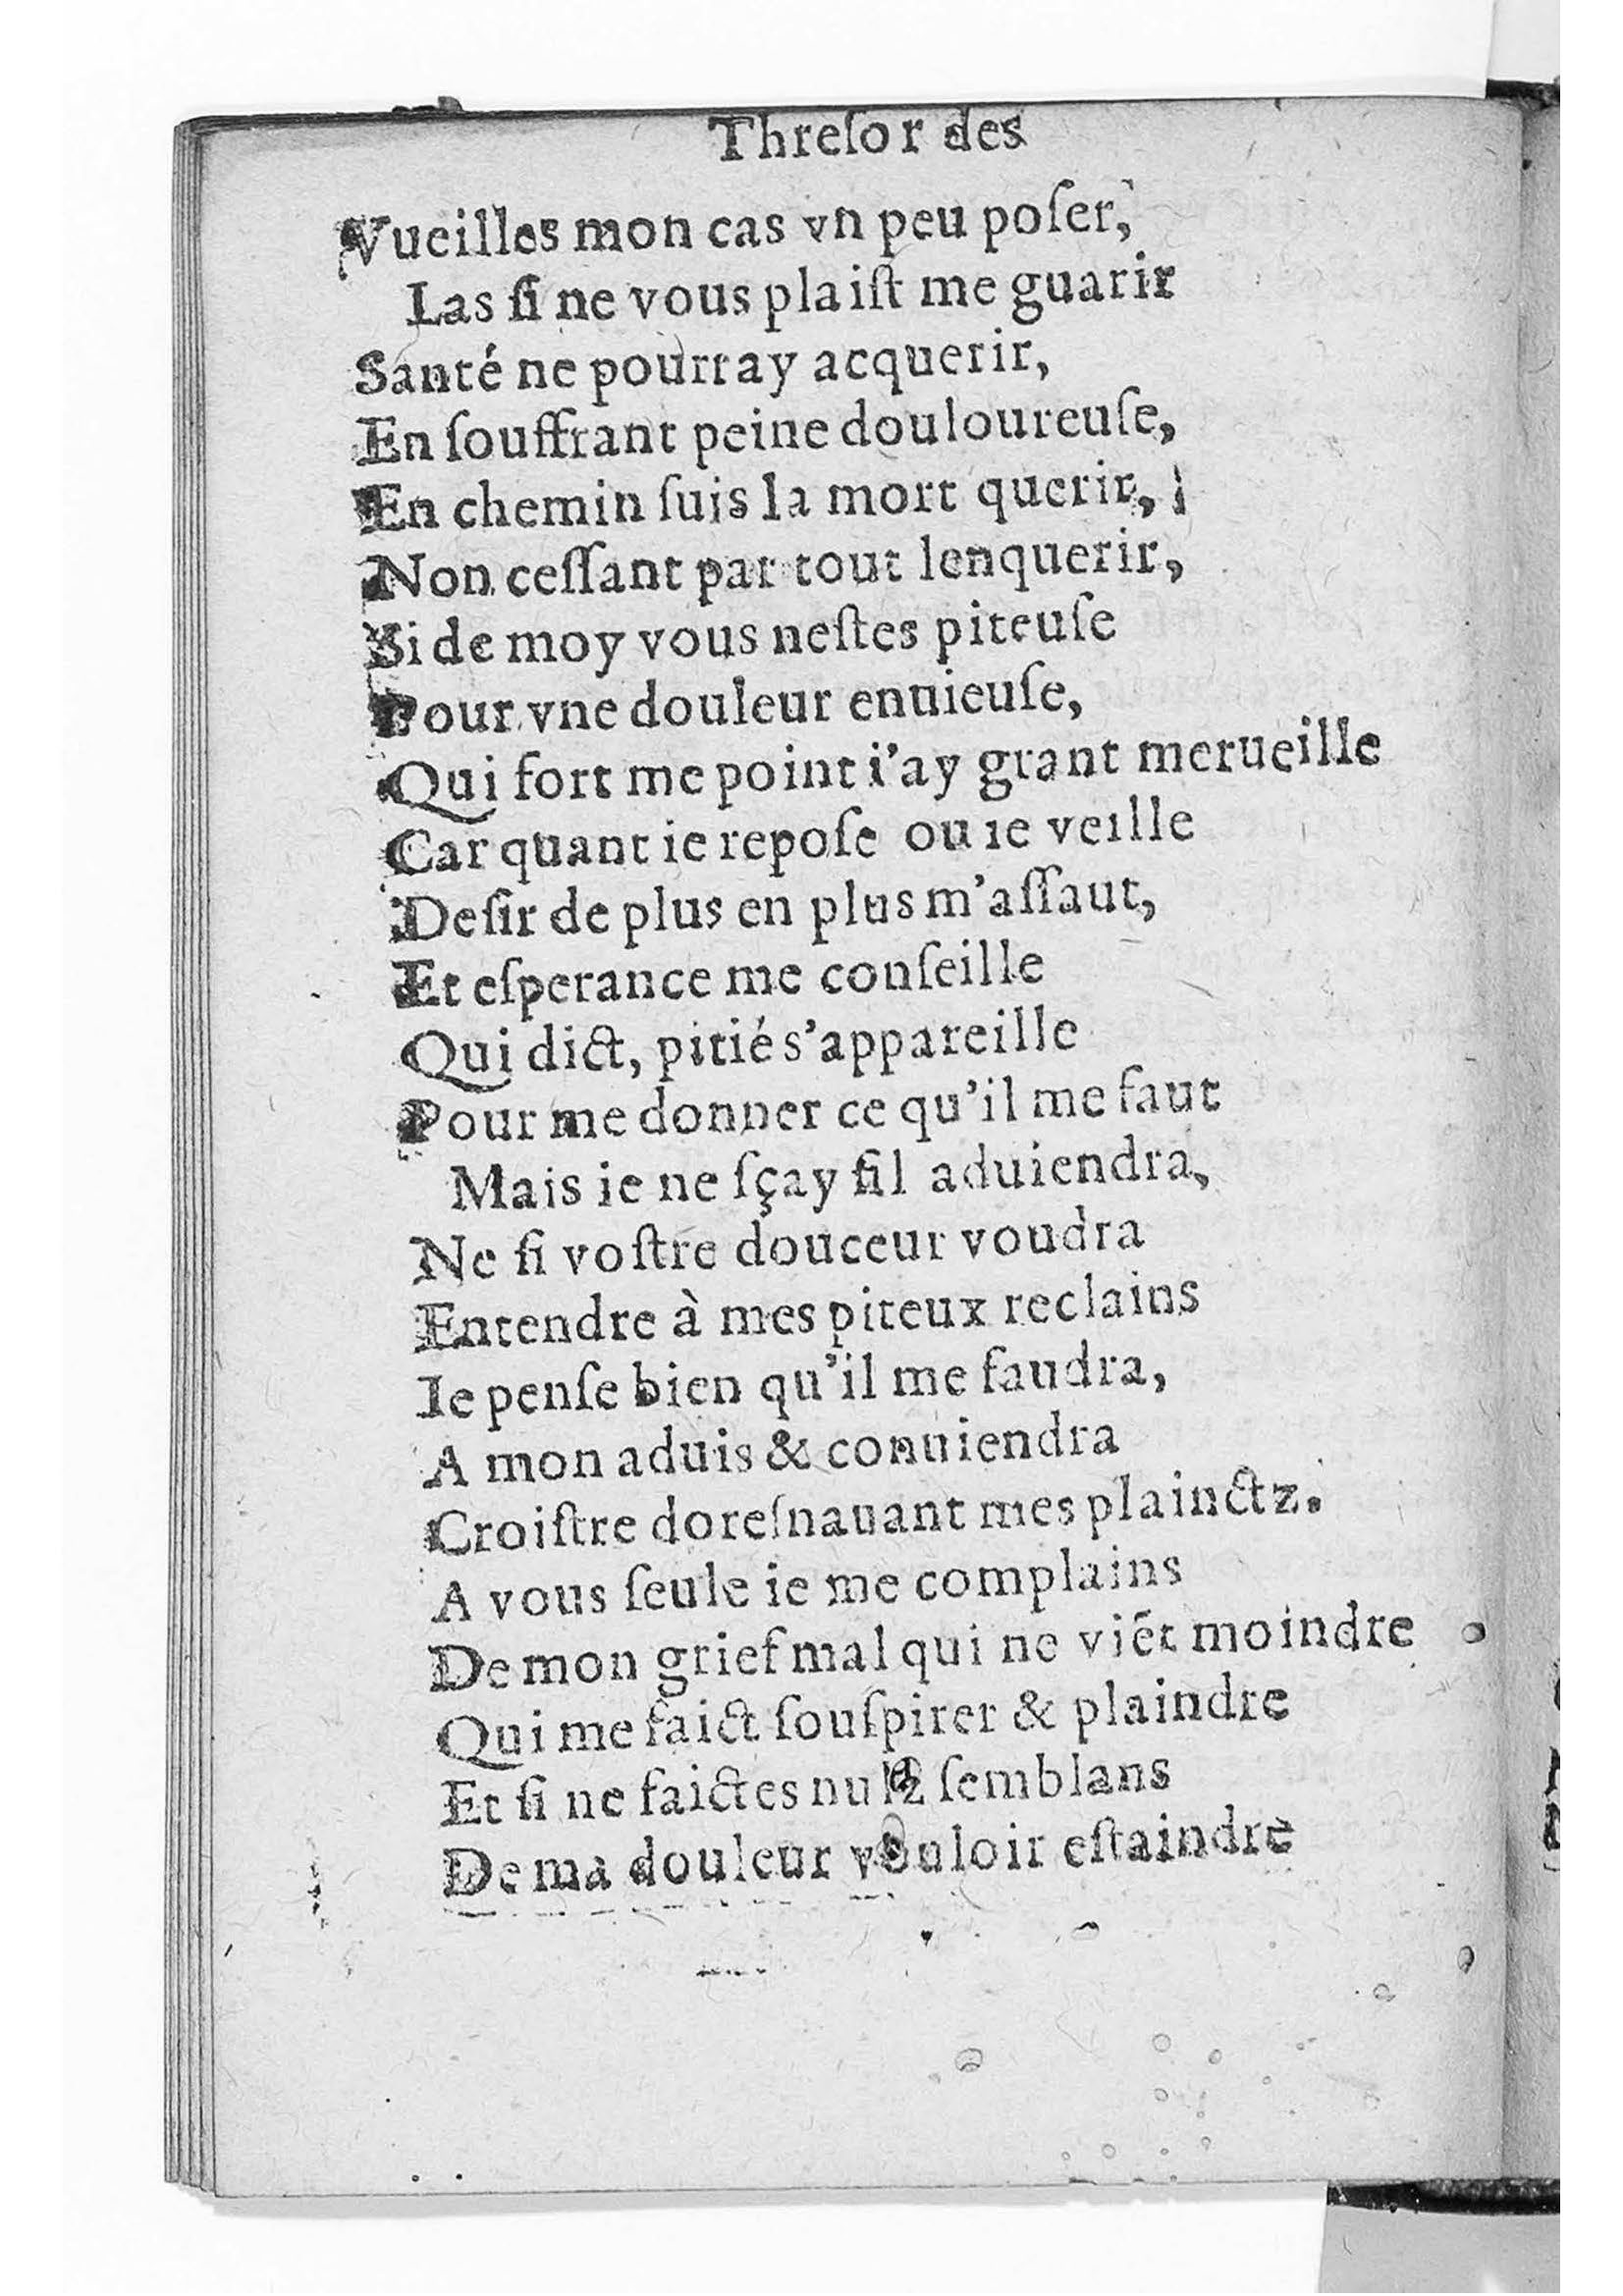 Threſor des
Vueilles mon cas vn peu poſer,
Las ſi ne vous plaiſt me guarir
Santé ne pourray acquerir,
En ſouffrant peine douloureuſe,
En chemin ſuis la mort querir,
Non ceſſant par tout lenquerir,
Si de moy vous neſtes piteuſe
Pour vne douleur ennuieuſe,
Qui fort me point i’ay grant merueille
Car quant ie repoſe ou ie veille
Deſir de plus en plus m’aſſaut,
Et eſperance me conſeille
Qui dict, pitié s’appareille
Pour me donner ce qu’il me faut
Mais ie ne ſçay ſil aduiendra,
Ne ſi voſtre douceur voudra
Entendre à mes piteux reclains
Ie penſe bien qu’il me faudra,
A mon aduis & conuiendra
Croiſtre doreſnauant mes plainctz.
A vous ſeule ie me complains
De mon grief mal qui ne viẽt moindre
Qui me faict ſouſpirer & plaindre
Et ſi ne faictes nulz ſemblans
De ma douleur vouloir eſtaindre